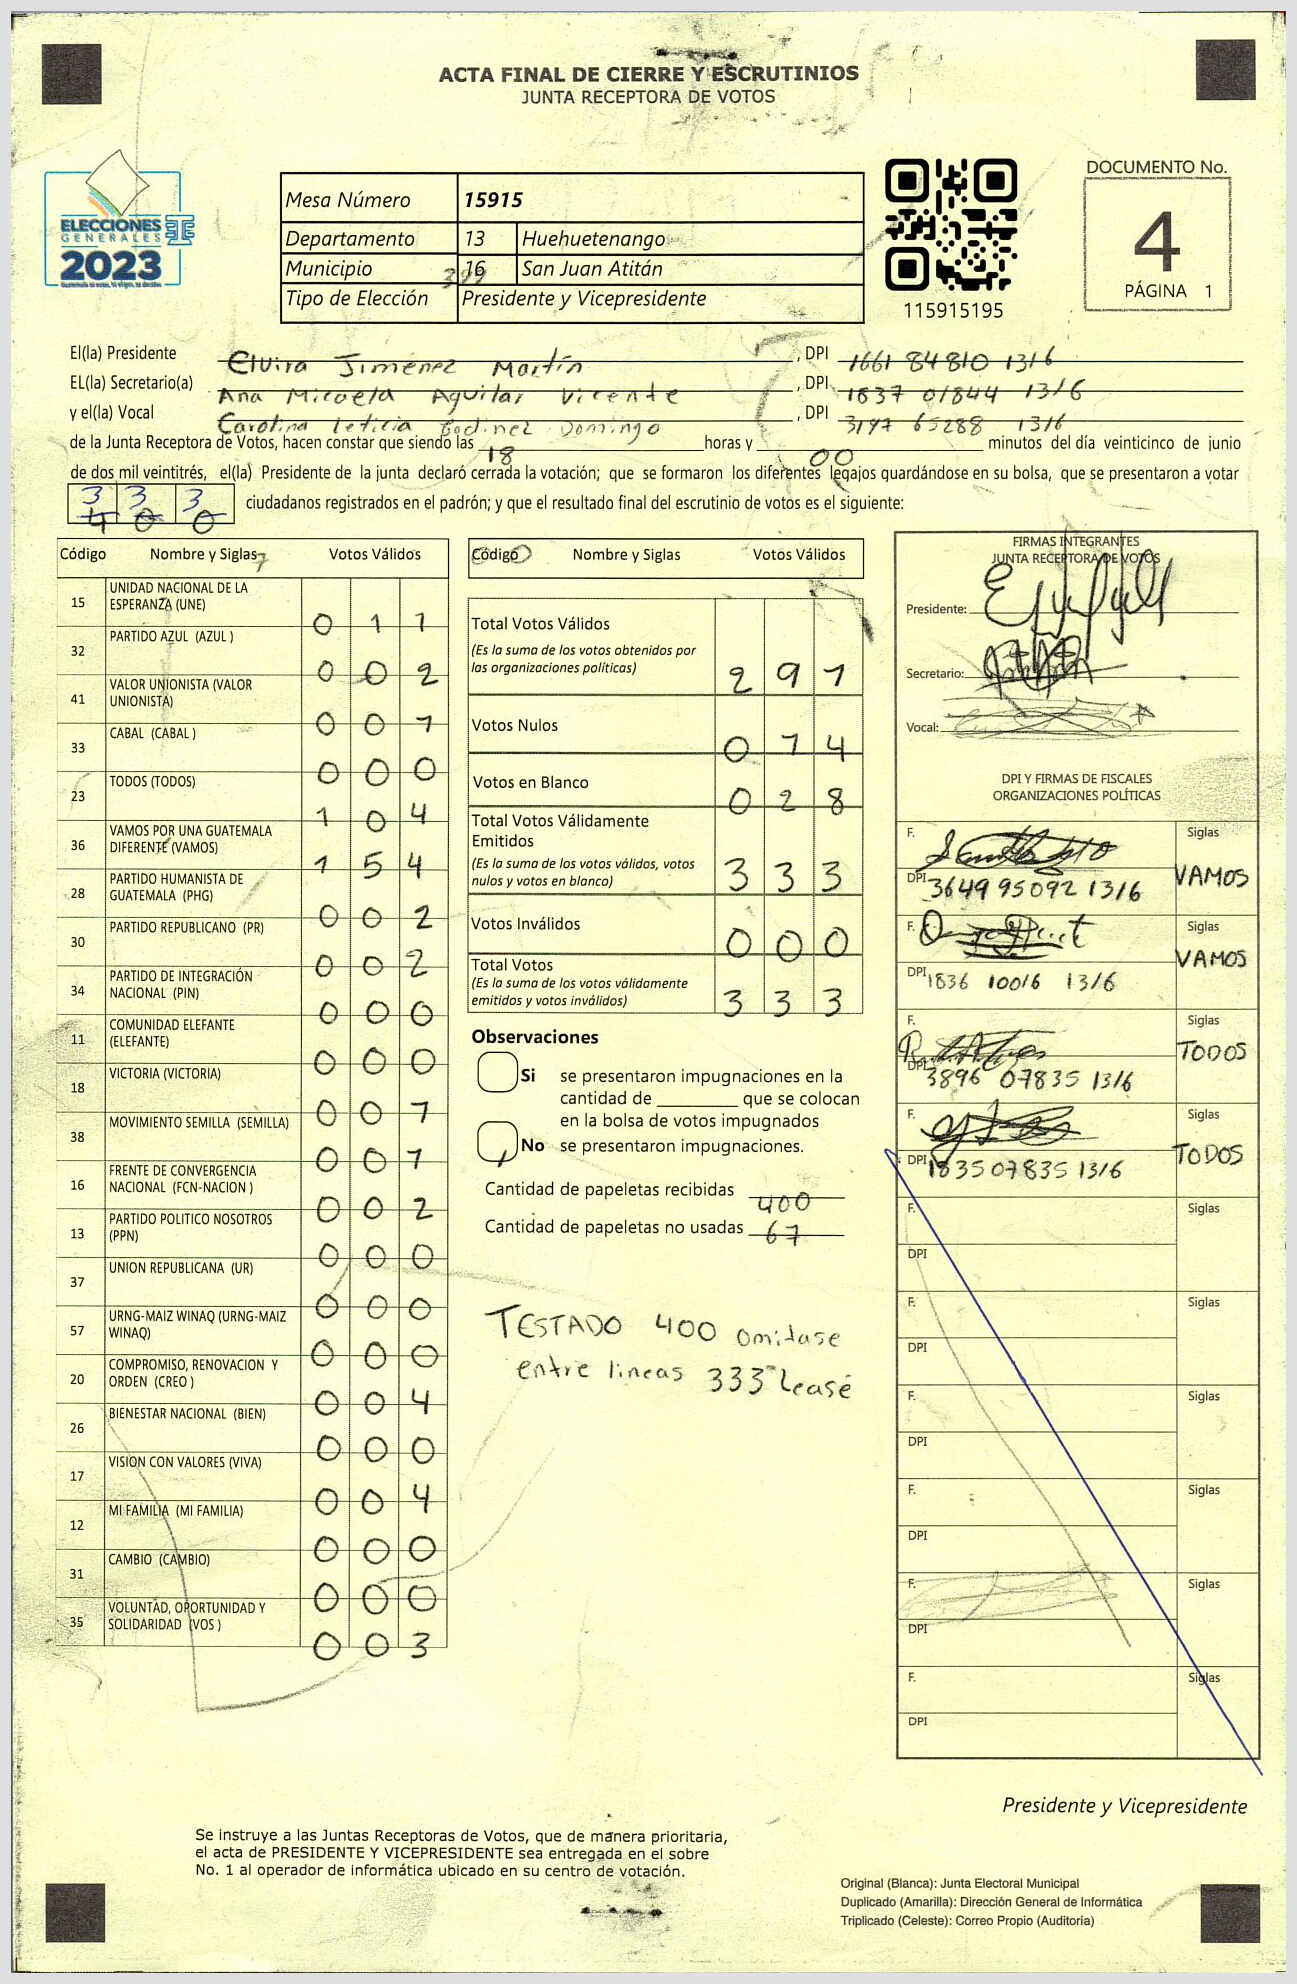 ACTA FINAL DE CIERRE Y ESCRUTINIOS
JUNTA RECEPTORA DE VOTOS
ELECCIONES
GENERALES
2023
Mesa Número 15915
Departamento 13 Huehuetenango
Municipio 16 San Juan Atitán
Tipo de Elección Presidente y Vicepresidente
115915195
DOCUMENTO No.
4
PÁGINA 1
El(la) Presidente Elvira Jiménez Martín , DPI 1661 84810 1316
EL(la) Secretario(a) Ana Micaela Aguilar Vicente , DPI 1837 01844 1316
y el(la) Vocal Carolina Leticia Godinez Domingo , DPI 3197 65288 1316
de la Junta Receptora de Votos, hacen constar que siendo las 18 horas y 00 minutos del día veinticinco de junio
de dos mil veintitrés, el(la) Presidente de la junta declaró cerrada la votación; que se formaron los diferentes legajos guardándose en su bolsa, que se presentaron a votar
3 3 3
4 0 0 ciudadanos registrados en el padrón; y que el resultado final del escrutinio de votos es el siguiente:
Código Nombre y Siglas Votos Válidos
15 UNIDAD NACIONAL DE LA ESPERANZA (UNE) 0 1 1
32 PARTIDO AZUL (AZUL ) 0 0 2
41 VALOR UNIONISTA (VALOR UNIONISTA) 0 0 1
33 CABAL (CABAL ) 0 0 0
23 TODOS (TODOS) 1 0 4
36 VAMOS POR UNA GUATEMALA DIFERENTE (VAMOS) 1 5 4
28 PARTIDO HUMANISTA DE GUATEMALA (PHG) 0 0 2
30 PARTIDO REPUBLICANO (PR) 0 0 2
34 PARTIDO DE INTEGRACIÓN NACIONAL (PIN) 0 0 0
11 COMUNIDAD ELEFANTE (ELEFANTE) 0 0 0
18 VICTORIA (VICTORIA) 0 0 1
38 MOVIMIENTO SEMILLA (SEMILLA) 0 0 1
16 FRENTE DE CONVERGENCIA NACIONAL (FCN-NACION ) 0 0 2
13 PARTIDO POLITICO NOSOTROS (PPN) 0 0 0
37 UNION REPUBLICANA (UR) 0 0 0
57 URNG-MAIZ WINAQ (URNG-MAIZ WINAQ) 0 0 0
20 COMPROMISO, RENOVACION Y ORDEN (CREO ) 0 0 4
26 BIENESTAR NACIONAL (BIEN) 0 0 0
17 VISION CON VALORES (VIVA) 0 0 4
12 MI FAMILIA (MI FAMILIA) 0 0 0
31 CAMBIO (CAMBIO) 0 0 0
35 VOLUNTAD, OPORTUNIDAD Y SOLIDARIDAD (VOS ) 0 0 3
Código Nombre y Siglas Votos Válidos
Total Votos Válidos 2 9 1
(Es la suma de los votos obtenidos por
las organizaciones políticas)
Votos Nulos 0 1 4
Votos en Blanco 0 2 8
Total Votos Válidamente
Emitidos
(Es la suma de los votos válidos, votos
nulos y votos en blanco) 3 3 3
Votos Inválidos 0 0 0
Total Votos
(Es la suma de los votos válidamente
emitidos y votos inválidos) 3 3 3
Observaciones
Si se presentaron impugnaciones en la
cantidad de ________ que se colocan
en la bolsa de votos impugnados
No se presentaron impugnaciones.
Cantidad de papeletas recibidas 400
Cantidad de papeletas no usadas 67
TESTADO 400 omitase
entre lineas 333 Lease
FIRMAS INTEGRANTES
JUNTA RECEPTORA DE VOTOS
Presidente:
Secretario:
Vocal:
DPI Y FIRMAS DE FISCALES
ORGANIZACIONES POLÍTICAS
F. Siglas
DPI 3649 95092 1316 VAMOS
F. Siglas
DPI 1836 10016 1316 VAMOS
F. Siglas
DPI 3896 07835 1316 TODOS
F. Siglas
DPI 1835 07835 1316 TODOS
F. Siglas
DPI
F. Siglas
DPI
F. Siglas
DPI
F. Siglas
DPI
F. Siglas
DPI
F. Siglas
DPI
Presidente y Vicepresidente
Se instruye a las Juntas Receptoras de Votos, que de manera prioritaria,
el acta de PRESIDENTE Y VICEPRESIDENTE sea entregada en el sobre
No. 1 al operador de informática ubicado en su centro de votación.
Original (Blanca): Junta Electoral Municipal
Duplicado (Amarilla): Dirección General de Informática
Triplicado (Celeste): Correo Propio (Auditoría)